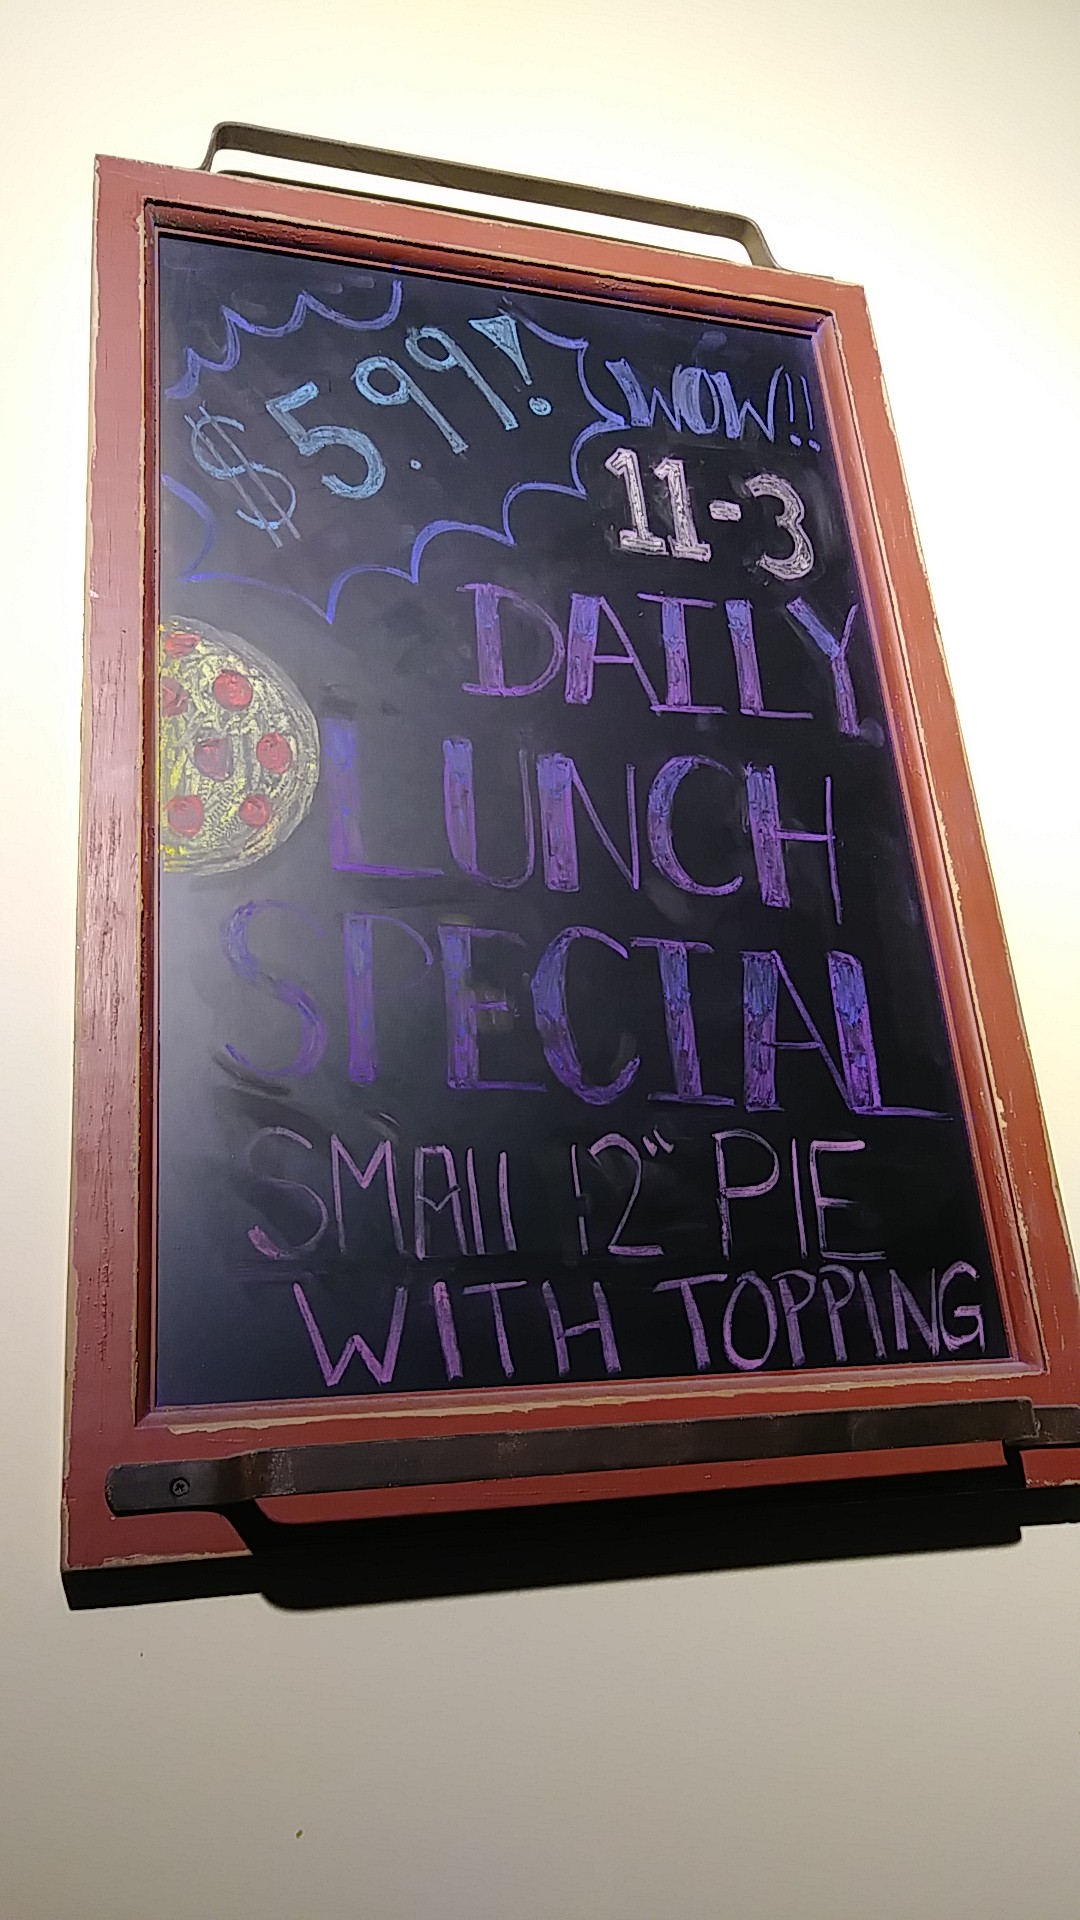 $5.99!
WOW!!
11-3
DAILY
LUNCH
SPECIAL
SMAll 12" PIE
WITH TOPPING